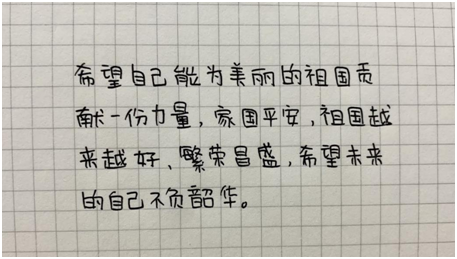 希望自己能为美丽的祖国贡
献一份力量，家国平安，祖国越
来越好、繁荣昌盛，希望未来
的自己不负韶华。